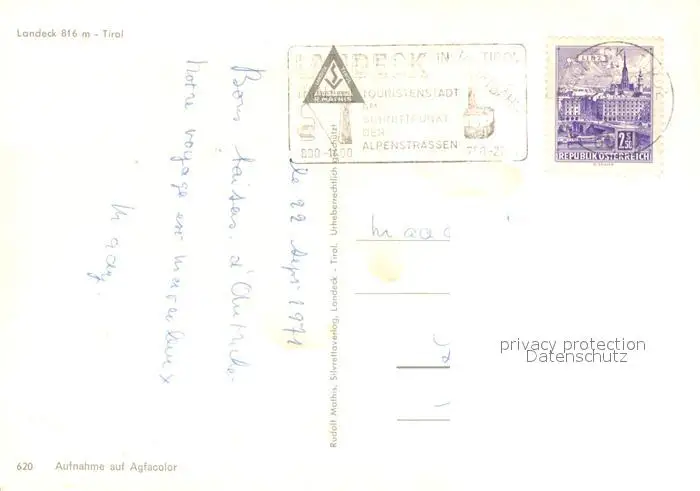 Landeck 816 m - Tirol
le 22 sept 1971
Bons baisers d'Autriche
Notre voyage est merveilleux
Magy.
Rudolf Mathis, Silvrettaverlag, Landeck - Tirol. Urheberrechtlich geschützt
LANDECK IN TIROL
R. MATHIS
TOURISTENSTADT
AM
SCHNITTPUNKT
DER
ALPENSTRASSEN
LINZ
2S
REPUBLIK ÖSTERREICH
privacy protection
Datenschutz
620 Aufnahme auf Agfacolor